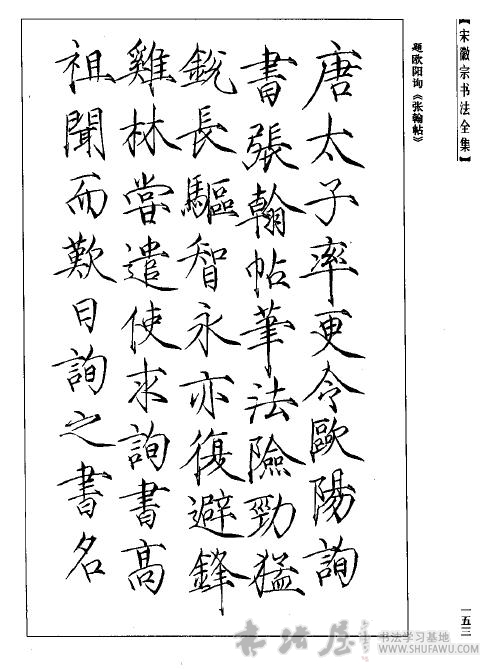 【宋徽宗书法全集】
题欧阳询《张翰帖》
唐太子率更令歐陽詢
書張翰帖筆法險勁猛
銳長驅智永亦復避鋒
雞林嘗遣使求詢書高
祖聞而歎曰詢之書名
一五三
书法屋
书法学习基地
WWW.SHUFAWU.COM